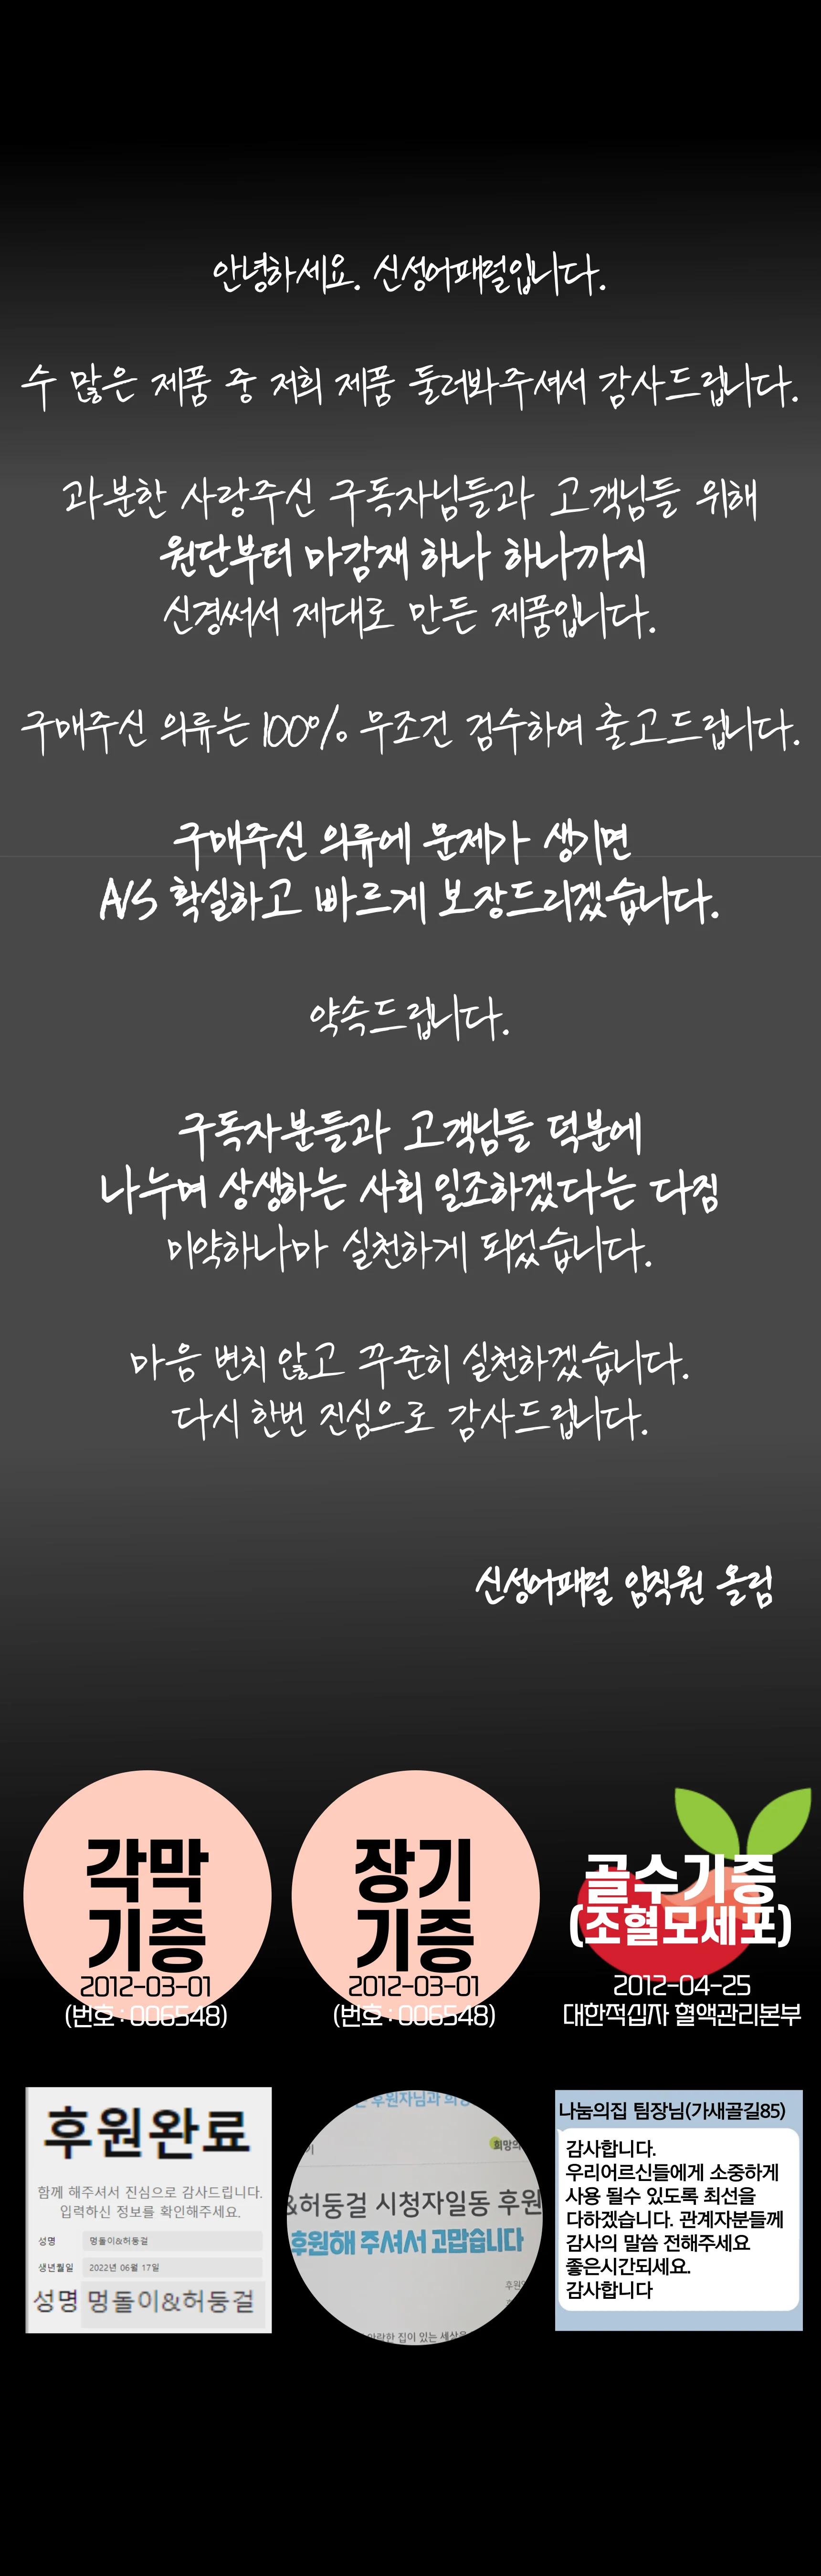 안녕하세요. 신성어패럴입니다.
수 많은 제품 중 저희 제품 둘러봐주셔서 감사드립니다.
과분한 사랑주신 구독자님들과 고객님들 위해
원단부터 마감재 하나 하나까지
신경써서 제대로 만든 제품입니다.
구매주신 의류는 100% 무조건 검수하여 출고드립니다.
구매주신 의류에 문제가 생기면
A/S 확실하고 빠르게 보장드리겠습니다.
약속드립니다.
구독자분들과 고객님들 덕분에
나누며 상생하는 사회 일조하겠다는 다짐
미약하나마 실천하게 되었습니다.
마음 변치 않고 꾸준히 실천하겠습니다.
다시 한번 진심으로 감사드립니다.
신성어패럴 임직원 올림
각막
기증
2012-03-01
(번호 : 006548)
장기
기증
2012-03-01
(번호 : 006548)
골수기증
(조혈모세포)
2012-04-25
대한적십자 혈액관리본부
후원완료
함께 해주셔서 진심으로 감사드립니다.
입력하신 정보를 확인해주세요.
성명 멍돌이&허둥걸
생년월일 2022년 06월 17일
성명 멍돌이&허둥걸
후원자님과
희망의
&허둥걸 시청자일동 후원
후원해 주셔서 고맙습니다
집이 있는 세상을
나눔의집 팀장님(가새골길85)
감사합니다.
우리어르신들에게 소중하게
사용 될수 있도록 최선을
다하겠습니다. 관계자분들께
감사의 말씀 전해주세요
좋은시간되세요.
감사합니다